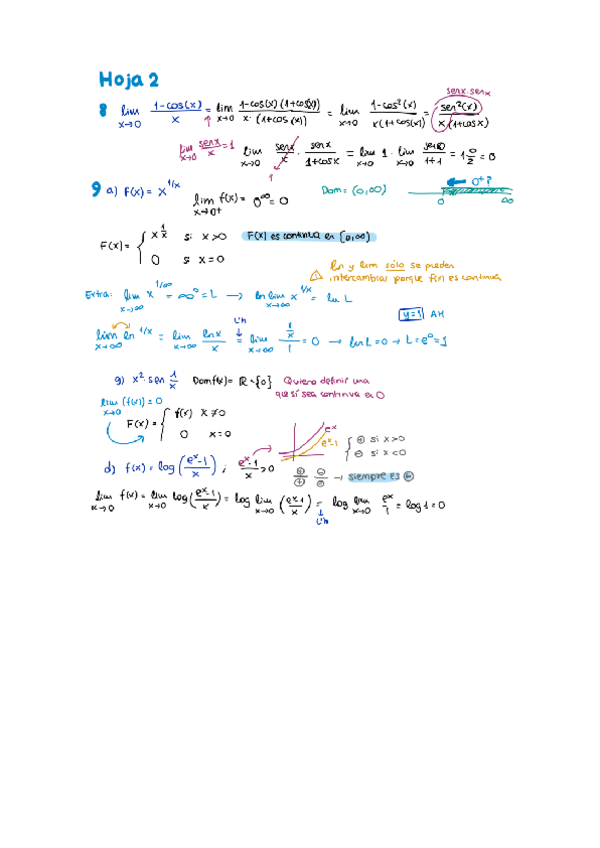 Hoja 2
senx·senx
8 lim x→0 (1-cos(x))/x = lim x→0 (1-cos(x)(1+cos(x)))/(x·(1+cos(x))) = lim x→0 (1-cos²(x))/(x(1+cos(x))) = sen²(x)/(x(1+cosx))
lim x→0 senx/x = 1 lim x→0 senx/x · senx/(1+cosx) = lim x→0 1 · lim x→0 sen0/(1+1) = 1·0/2 = 0
1
9 a) f(x) = x^(1/x) lim x→0+ f(x) = 0^∞ = 0 Dom = (0,∞) ← 0+?
0 ∞
F(x) = { x^(1/x) si x>0 F(x) es continua en [0,∞)
0 si x=0
ln y lim sólo se pueden
⚠ intercambiar porque f(x) es continua
Extra: lim x→∞ x^(1/x) = ∞^0 = L → ln lim x→∞ x^(1/x) = ln L
y=1 AH
L'H
lim x→∞ ln^(1/x) = lim x→∞ lnx/x = lim x→∞ (1/x)/1 = 0 → ln L = 0 → L = e^0 = 1
g) x²·sen 1/x Dom f(x) = ℝ-{0} Quiero definir una
que sí sea continua en 0
lim x→0 (f(x)) = 0
F(x) = { f(x) x≠0
0 x=0
e^x
e^x-1
{ ⊕ si x>0
⊖ si x<0
d) f(x) = log((e^x-1)/x) ; (e^x-1)/x > 0 ⊕/⊕ ⊖/⊖ → siempre es ⊕
lim x→0 f(x) = lim x→0 log((e^x-1)/x) = log lim x→0 ((e^x-1)/x) = log lim x→0 e^x/1 = log 1 = 0
L'H